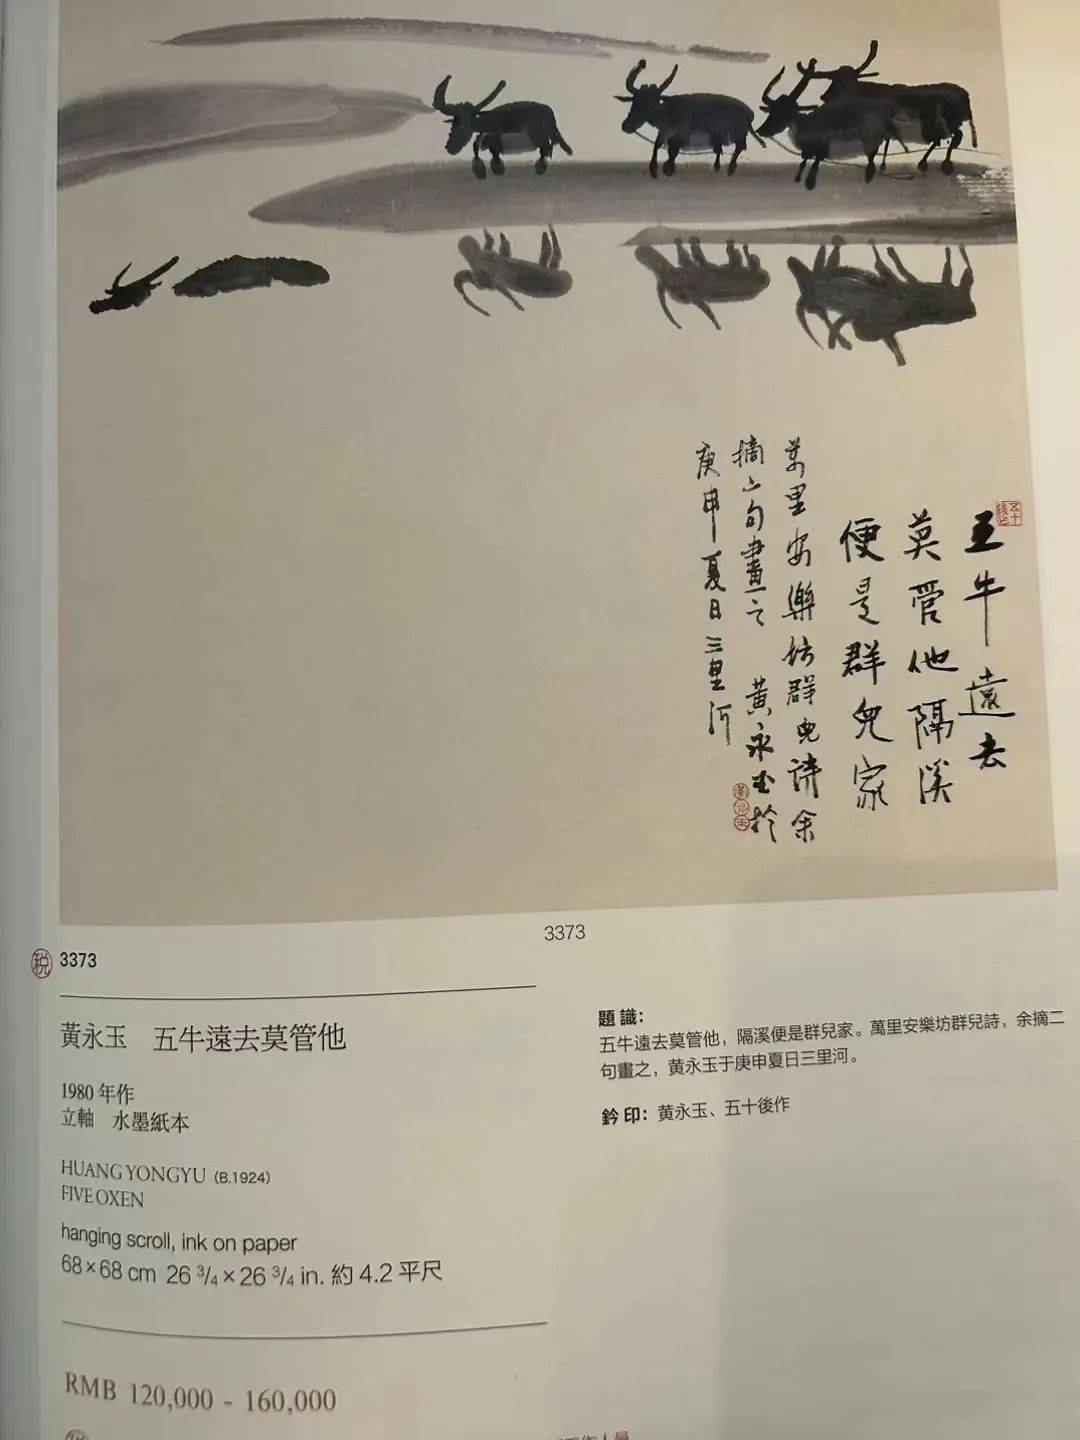 五牛遠去
莫管他隔溪
便是群兒家
萬里安樂坊群兒詩余
摘二句畫之 黄永玉於
庚申夏日三里河
3373
税 3373
黃永玉 五牛遠去莫管他
1980 年作
立軸 水墨紙本
HUANG YONGYU (B.1924)
FIVE OXEN
hanging scroll, ink on paper
68×68 cm 26 3/4 × 26 3/4 in. 約 4.2 平尺
RMB 120,000 - 160,000
題識：
五牛遠去莫管他，隔溪便是群兒家。萬里安樂坊群兒詩，余摘二
句畫之，黄永玉于庚申夏日三里河。
鈐印：黄永玉、五十後作